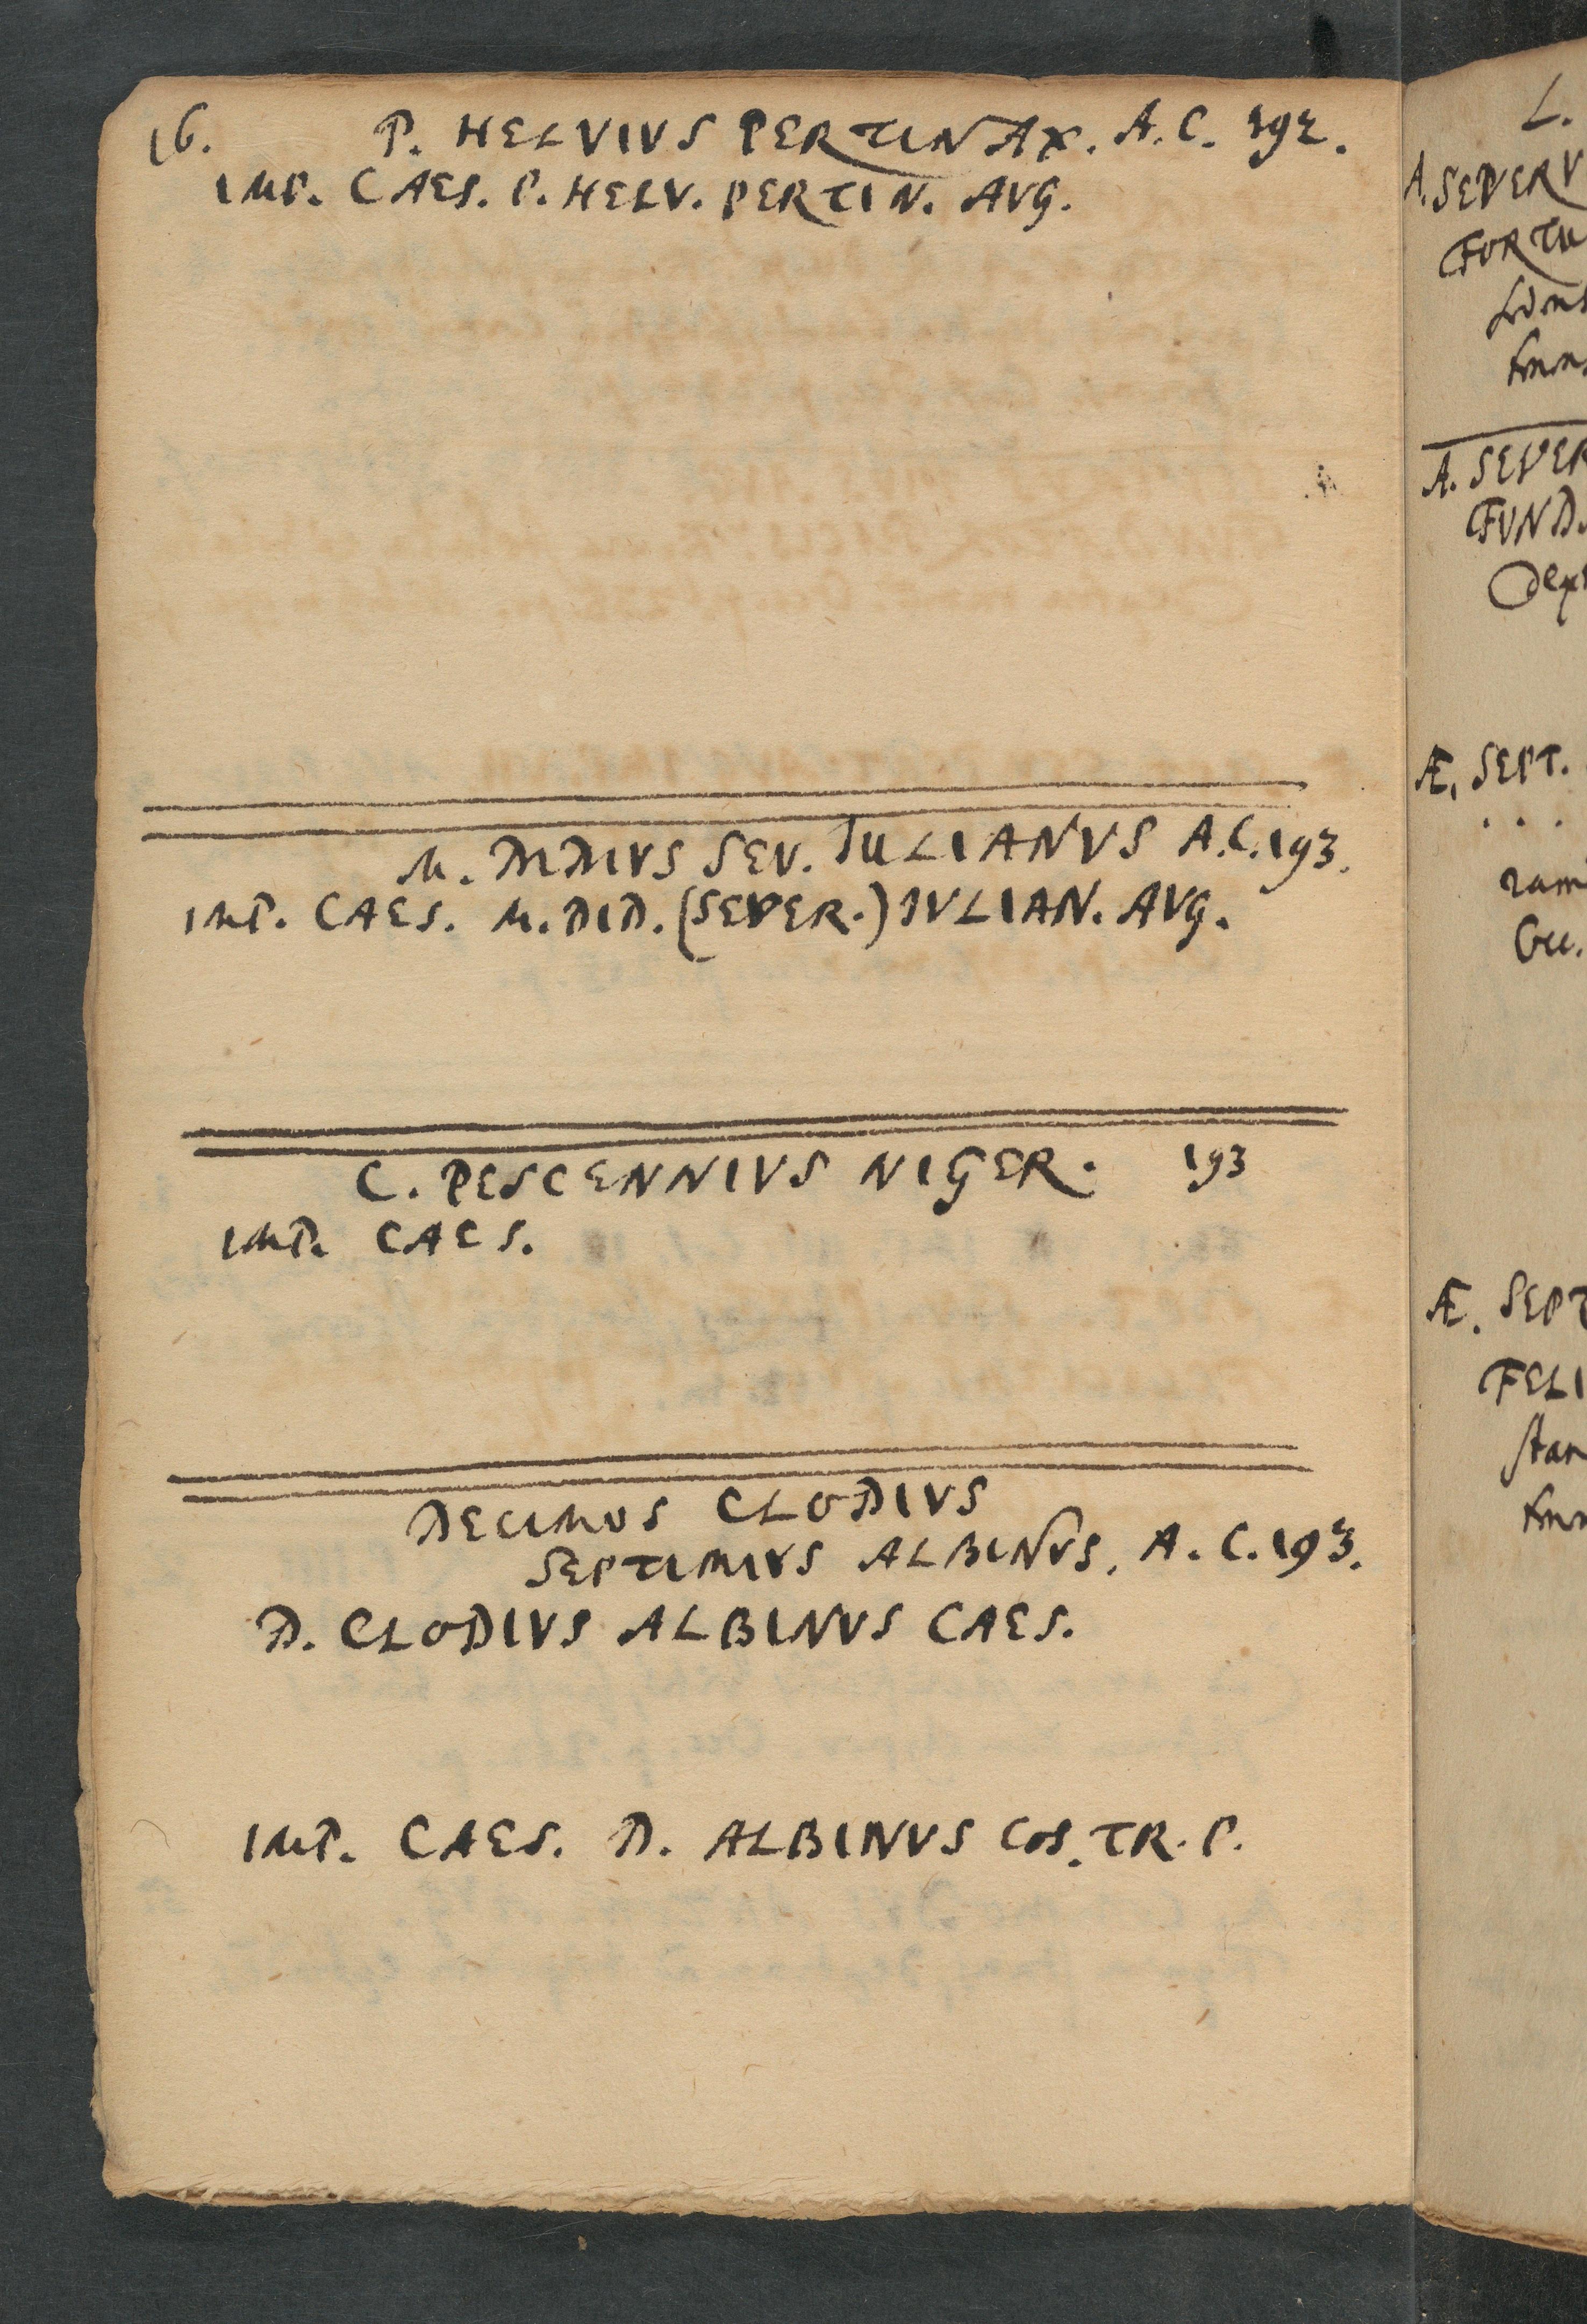 16. P. HELVIVS PERTINAX. A.C. 192.
IMP. CAES. P. HELV. PERTIN. AVG.
M. DIDIVS SEV. IULIANVS A.C. 193.
IMP. CAES. M. DID. (SEVER.) IVLIAN. AVG.
C. PESCENNIVS NIGER. 193
IMP. CAES.
DECIMVS CLODIVS
SEPTIMIVS ALBINVS. A.C. 193.
D. CLODIVS ALBINVS CAES.
IMP. CAES. D. ALBINVS COS. TR. P.
L.
A. SEVERV
FORTU
A. SEVER
FVND.
Æ. SEPT.
. . .
Æ. SEPT
FELI